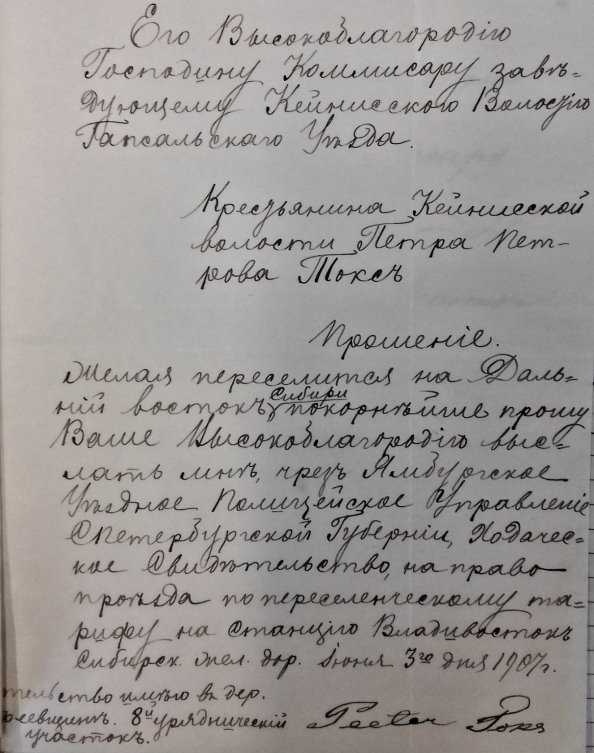 Его Высокоблагородію
Господину Коммисару завѣ-
дующему Кейнисского Волостію
Гапсальскаго Уѣзда.
Кресзьянина Кейнисской
волости Петра Пет-
рова Токсъ
Прошеніе.
Желая переселится на Даль-
ній востокъ Сибири покорнѣйше прошу
Ваше Высокоблагородію выс-
лать мнѣ, чрезъ Ямбургское
Уѣздное Полицейское Управленіе
СПетербургской Губерніи, Ходачес-
кое Свидѣтельство, на право
проѣзда по переселенческому та-
рифу на станцію Владивостокъ
Сибирск. жел. дор. Іюня 3го дня 1907г.
тельство имѣю въ дер.
8й урядническій
участокъ.
Peeter Toks